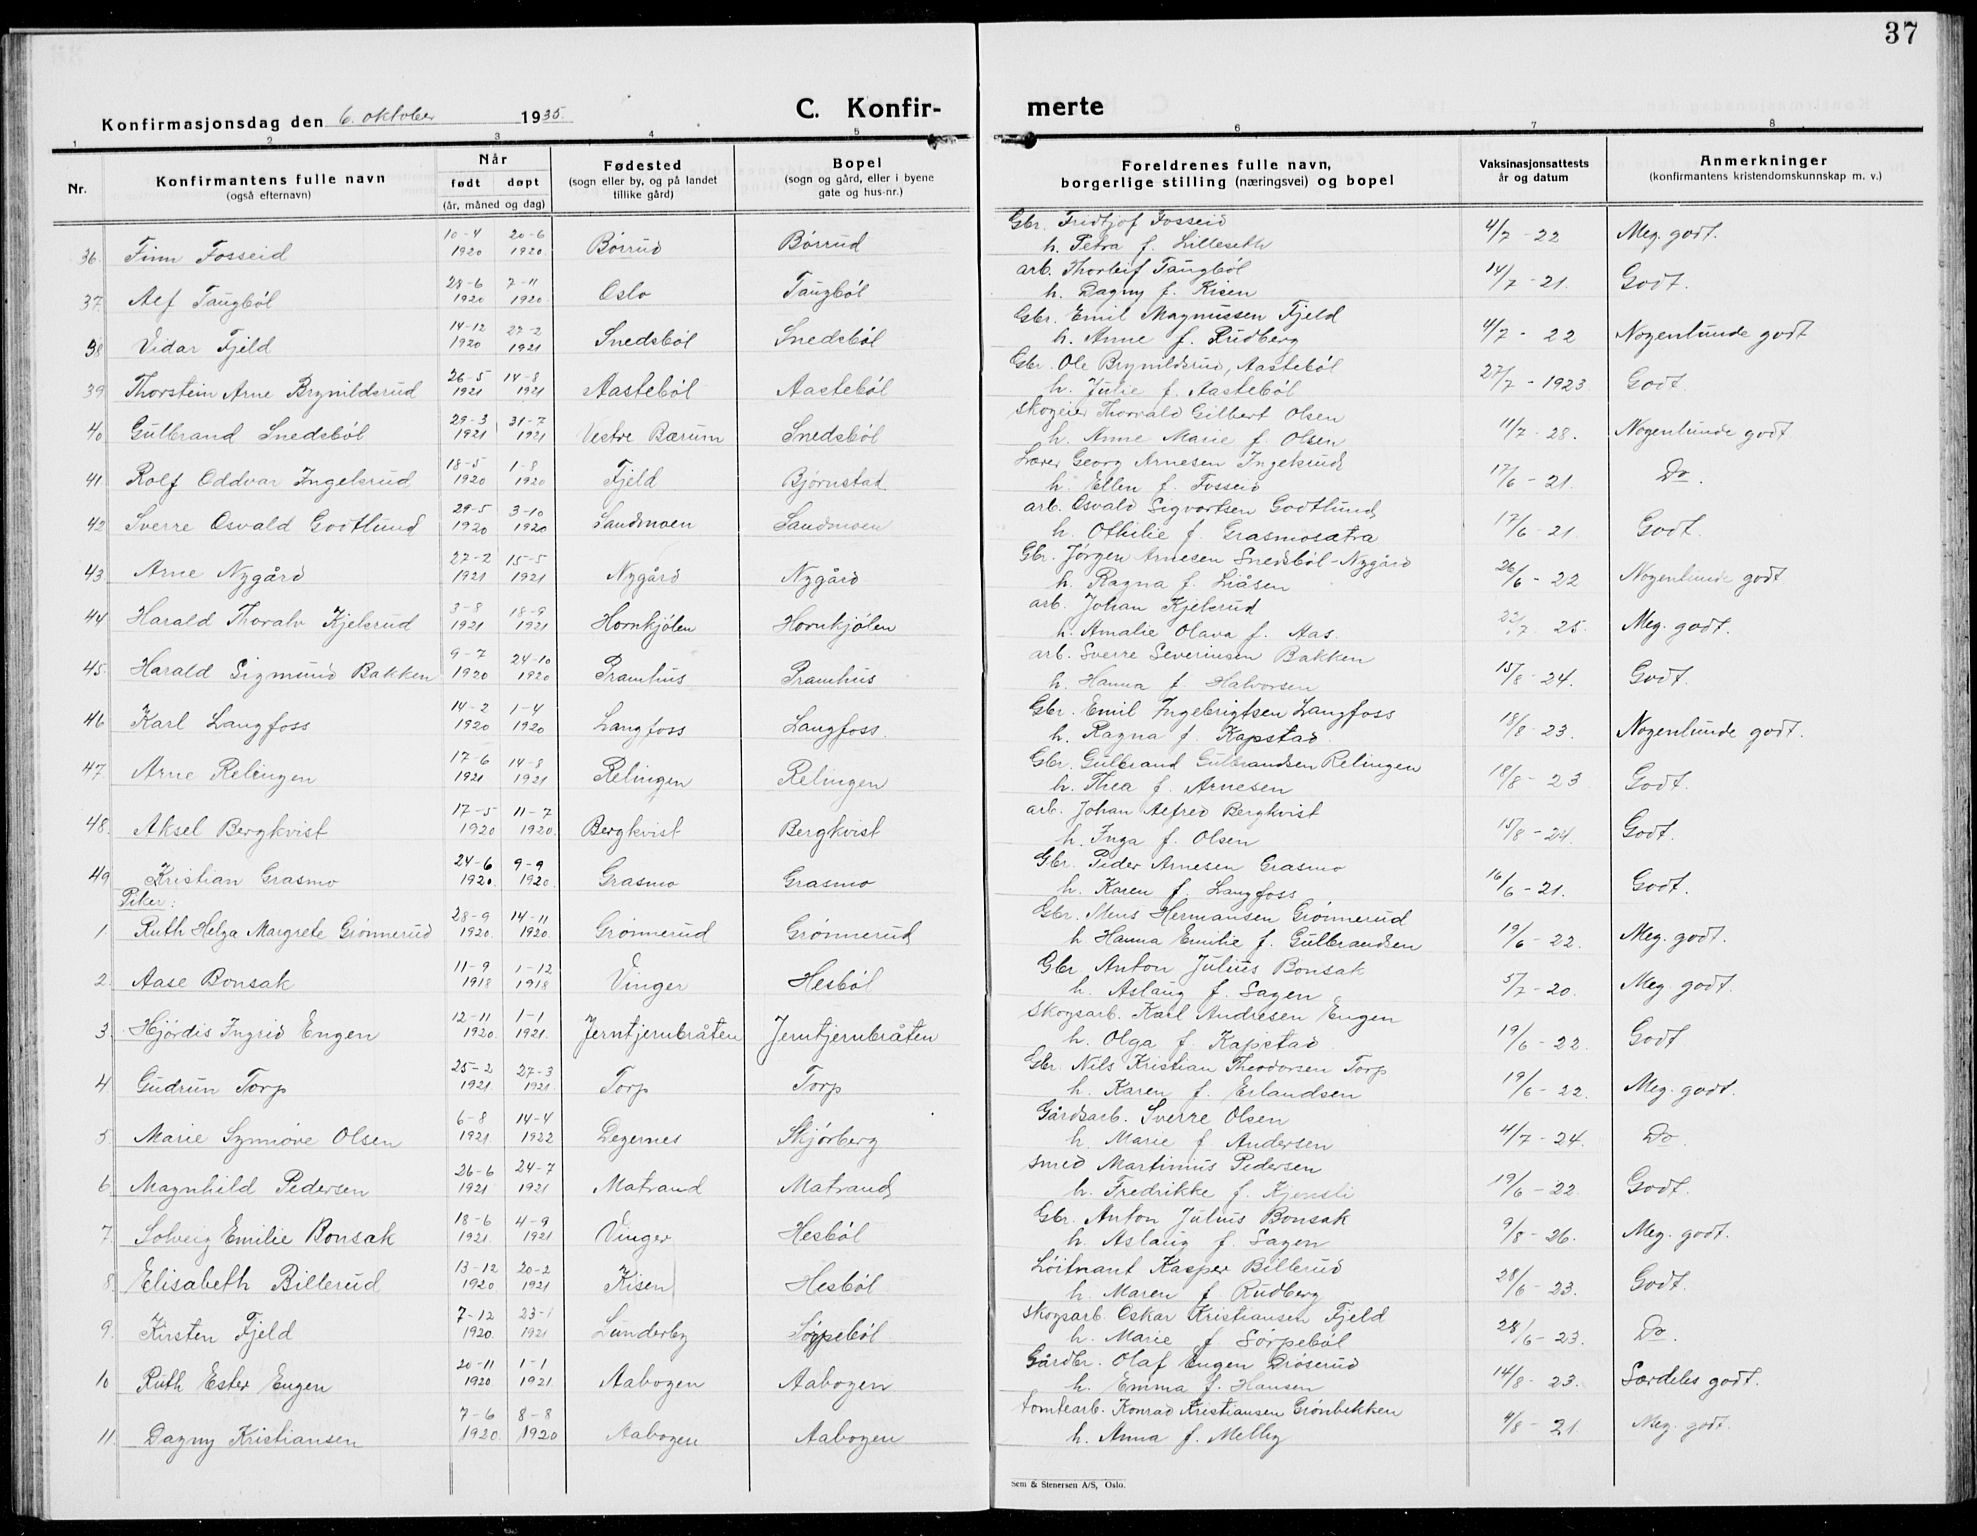 37
Konfirmasjonsdag den 6. oktober 1935.
C. Konfir-
merte
1 2 3 4 5 6 7 8
Nr.
Konfirmantens fulle navn
(også efternavn)
Når
født døpt
(år, måned og dag)
Fødested
(sogn eller by, og på landet
tillike gård)
Bopel
(sogn og gård, eller i byene
gate og hus-nr.)
Foreldrenes fulle navn,
borgerlige stilling (næringsvei) og bopel
Vaksinasjonsattests
år og datum
Anmerkninger
(konfirmantens kristendomskunnskap m. v.)
10-4 20-6 Gbr. Fridtjof Fosseid
36. Finn Fosseid 1920 1920 Børrud Børrud h. Petra f. Lilleseth 4/7 - 22 Meg. godt.
28-6 7-11 arb. Thorleif Taugbøl
37. Alf Taugbøl 1920 1920 Oslo Taugbøl h. Dagny f. Kisen 14/7 - 21. Godt.
14-12 27-2 Gbr. Emil Magnussen Fjeld
38 Vidar Fjeld 1920 1921 Snedsbøl Snedsbøl h. Anne f. Rudberg 4/7 - 22 Nogenlunde godt
26-5 14-8 Gbr. Ole Brynildsrud, Aastebøl
39 Thorstein Arne Brynildsrud 1921 1921 Aastebøl Aastebøl h. Julie f. Aastebøl 27/7 - 1923 Godt.
29-3 31-7 skogeier Thorvald Gilbert Olsen
40 Gulbrand Snedsbøl 1921 1921 Vestre Bærum Snedsbøl h. Anne Marie f. Olsen 11/7 - 28. Nogenlunde godt
18-5 1-8 Lærer Georg Arnesen Ingelsrud
41. Rolf Oddvar Ingelsrud 1920 1920 Fjeld Bjørnstad h. Ellen f. Fosseid 17/6 - 21. Do.
29-5 3-10 arb. Osvald Sigvartsen Godtlund
42 Sverre Osvald Godtlund 1920 1920 Sandmoen Sandmoen h. Othilie f. Grasmosætra 17/6 - 21 Godt.
27-2 15-5 Gbr. Jørgen Arnesen Snedsbøl-Nygård
43 Arne Nygård 1921 1921 Nygård Nygård h. Ragna f. Liåsen 26/6 - 22 Nogenlunde godt
3-8 18-9 arb. Johan Kjelsrud
44 Harald Thoralv Kjelsrud 1921 1921 Hornkjølen Hornkjølen h. Amalie Olava f. Aas. 22/7 25. Meg. godt.
9-7 24-10 arb. Sverre Severinsen Bakken
45. Harald Sigmund Bakken 1920 1920 Pramhus Pramhus h. Hanna f. Halvorsen 15/8 - 24. Godt.
14-2 1-4 Gbr. Emil Ingebrigtsen Langfoss
46 Karl Langfoss 1920 1920 Langfoss Langfoss. h. Ragna f. Kapstad 18/8 - 23. Nogenlunde godt.
17-6 14-8 Gbr. Gulbrand Gulbrandsen Relingen
47. Arne Relingen 1921 1921 Relingen Relingen h. Thea f. Arnesen 18/8 - 23 Godt.
17-5 11-7 arb. Johan Alfred Bergkvist
48. Aksel Bergkvist 1920 1920. Bergkvist Bergkvist h. Inga f. Olsen 15/8 - 24. Godt.
24-6 9-9 Gbr. Peder Arnesen Grasmo
49 Kristian Grasmo 1920. 1920. Grasmo Grasmo h. Karen f. Langfoss 16/6 - 21. Godt.
Piker:
28-9 14-11 Gbr. Mens Hermansen Grønnerud
1. Ruth Helga Margrete Grønnerud 1920. 1920. Grønnerud Grønnerud h Hanna Emilie f. Gulbrandsen 19/6 - 22. Meg. godt.
11-9 1-12 Gbr Anton Julius Bonsak
2. Aase Bonsak 1918 1918 Vinger Hesbøl h. Aslaug f. Sagen 5/7 - 20. Meg. godt.
12-11 1-1 skogsarb. Karl Andresen Engen
3. Hjørdis Ingrid Engen 1920. 1921. Jerntjernbråten Jerntjernbråten h. Olga f. Kapstad 19/6 - 22. Godt
25-2 27-3 Gbr. Nils Kristian Theodorsen Torp
4. Gudrun Torp 1921. 1921. Torp Torp h. Karen f. Erlandsen 19/6 - 22. Meg. godt.
6-8 14-4 Gårdsarb. Sverre Olsen
5. Marie Synnøve Olsen 1921. 1922 Degernes Skjørberg h. Marie f Andersen 4/7 - 24. Do.
26-6 24-7 smed Martinius Pedersen
6. Magnhild Pedersen 1921 1921 Matrand Matrand h. Fredrikke f. Kjensli 19/6 - 22. Godt.
18-6 4-9 Gbr. Anton Julius Bonsak
7. Solveig Emilie Bonsak 1921. 1921 Vinger Hesbøl h. Aslaug f. Sagen 9/8 - 26. Meg. godt.
13-12 20-2 Løitnant Kasper Billerud
8. Elisabeth Billerud 1920 1921 Kisen Hesbøl h. Maren f. Rudberg 28/6 - 23. Godt.
7-12 23-1 skogsarb. Oskar Kristiansen Fjeld
9. Kirsten Fjeld 1920. 1921 Lunderby Sørpebøl h. Marie f Sørpebøl 28/6 - 23. Do.
20-11 1-1 Gårdbr. Olaf Engen Drøserud
10 Ruth Ester Engen 1920 1921 Aabogen Aabogen h. Emma f. Hansen 14/8 - 23. Særdeles godt.
7-6 8-8 tomtearb. Konrad Kristiansen Grønbekken
11. Dagny Kristiansen 1920. 1920 Aabogen Aabogen h. Anna f. Melby 4/8 - 21. Meg. godt.
Sem & Stenersen A/S, Oslo.